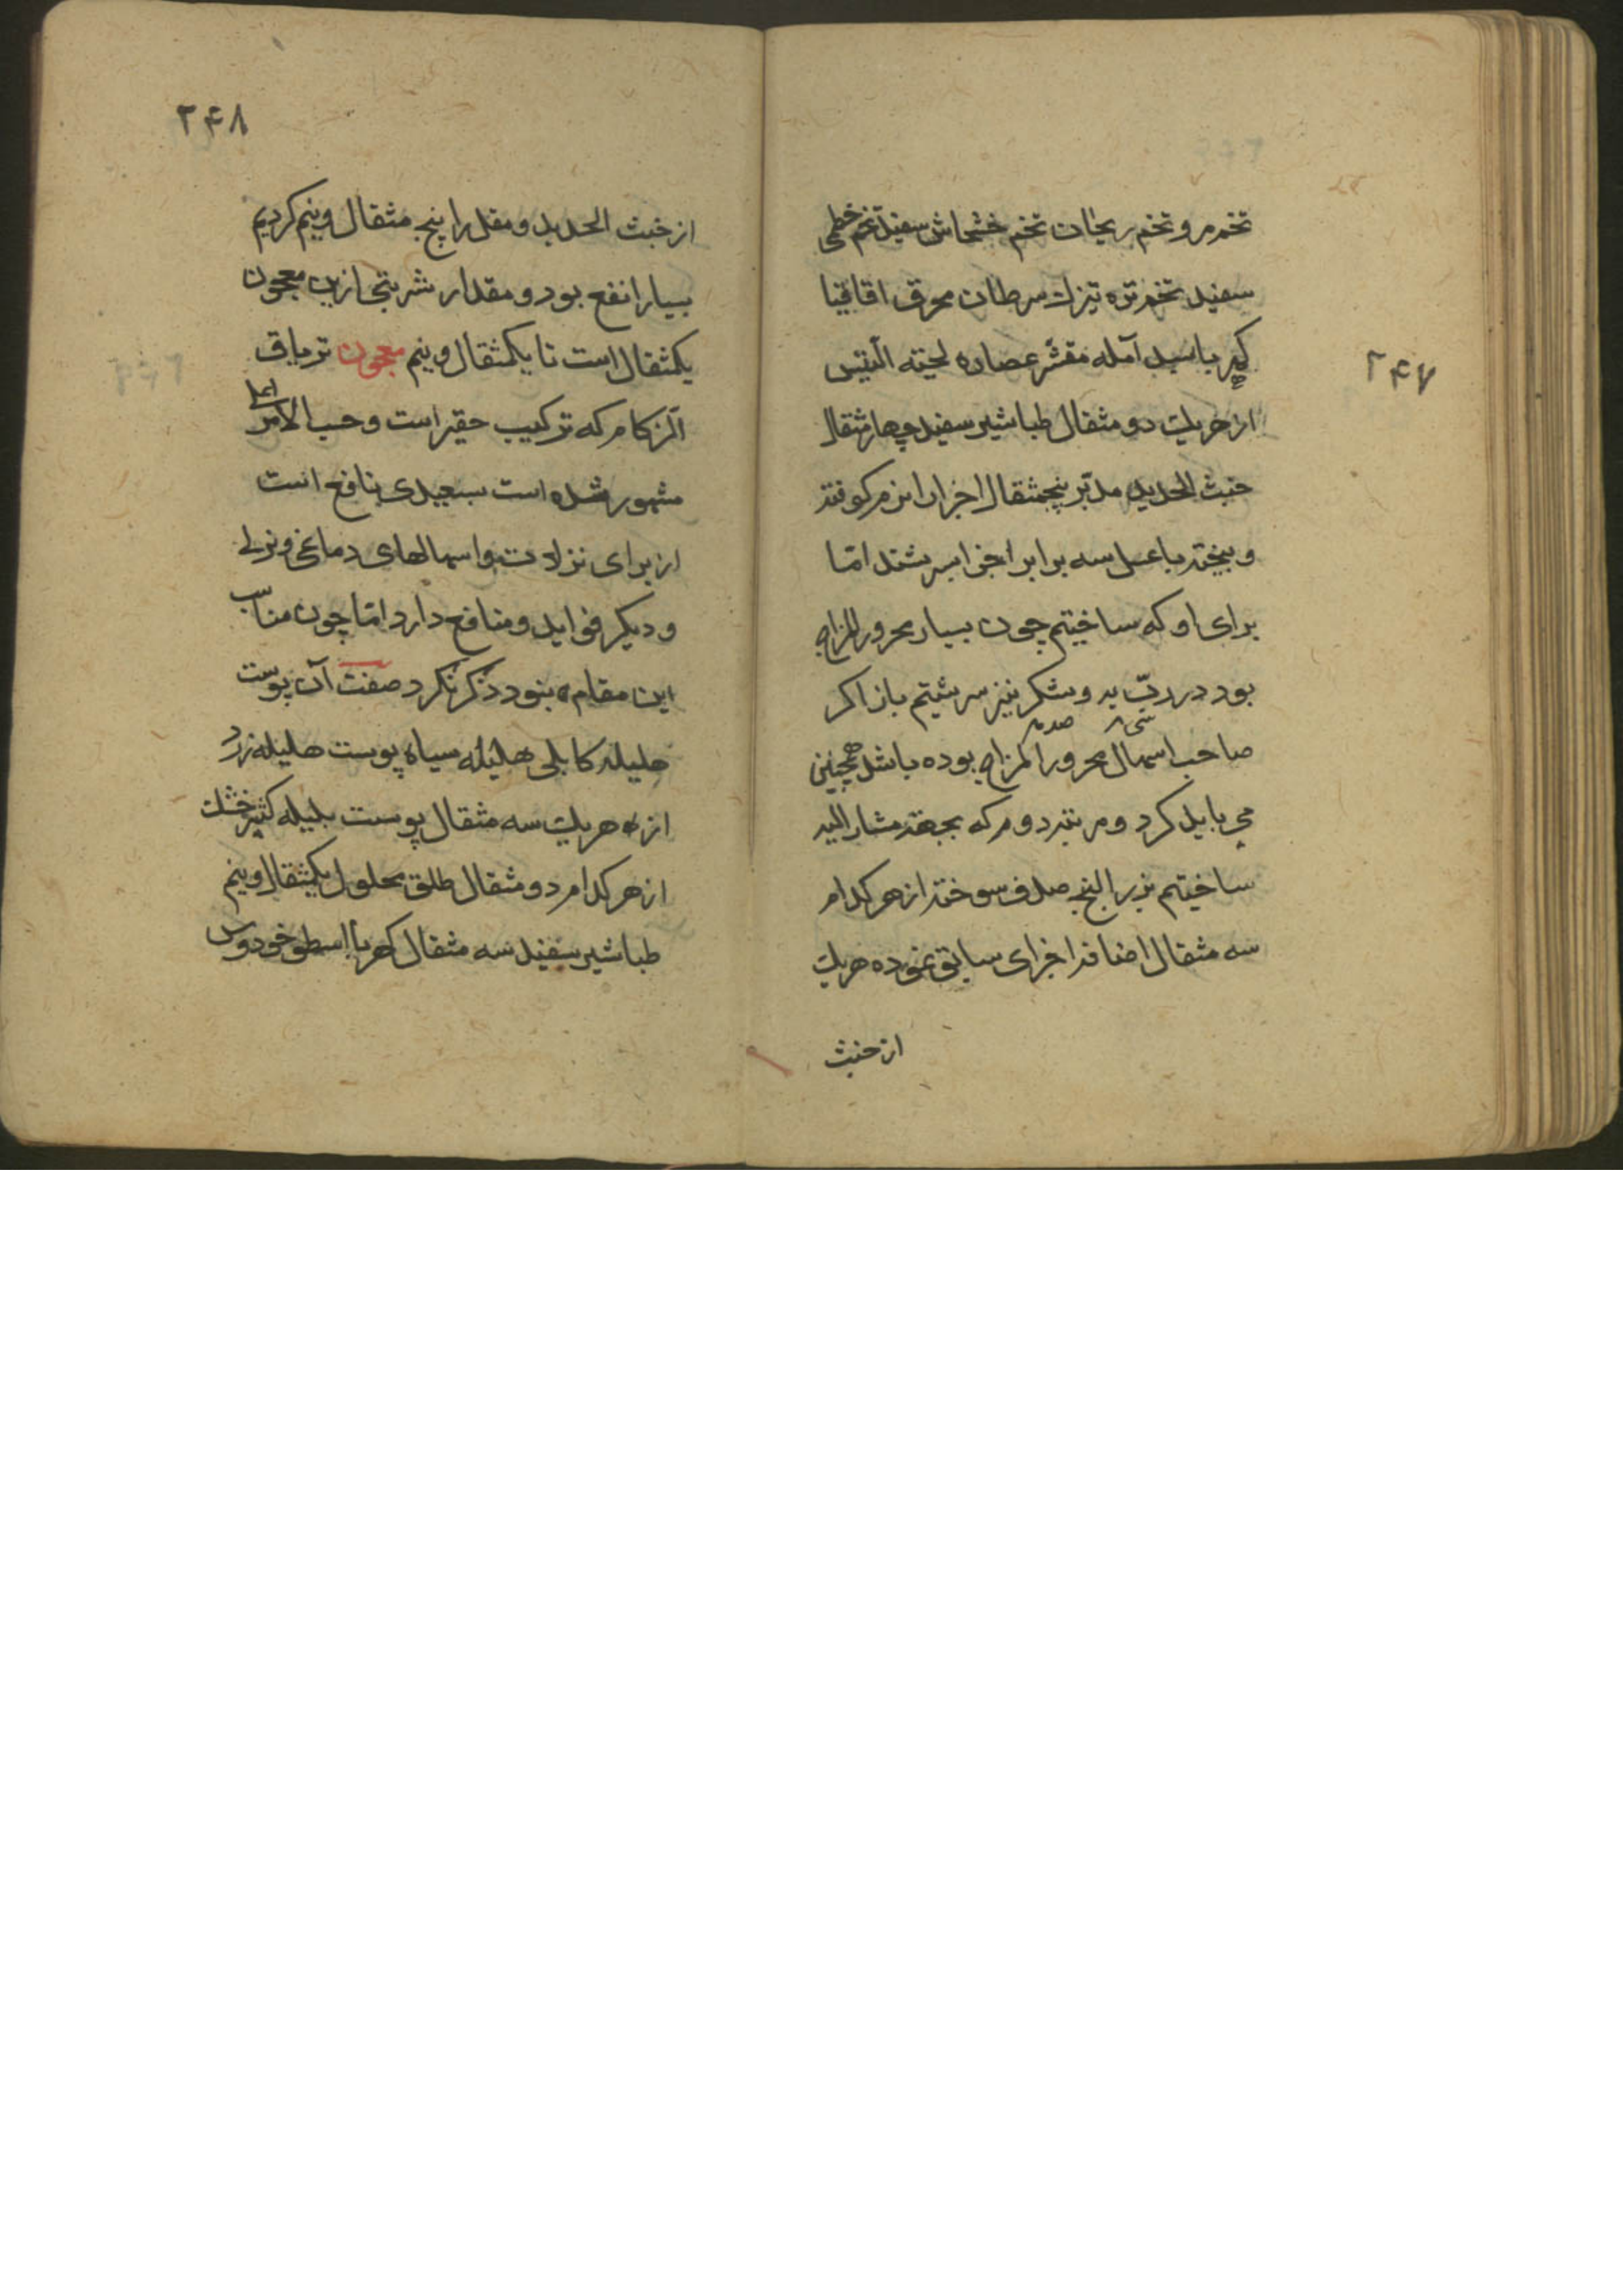 ۲۴۷
تخم مرو تخم ریحان تخم خشخاش سفید تخم خطمی
سفید تخم تره تیزک سرطان محرق اقاقیا
کهربا سبد آمله مقشر عصاره لحیته التیس
از هریک دو مثقال طباشیر سفید چهار مثقال
خبث الحدید مدبّر پنجمثقال اجزا را نرم کوفته
و بیخته با عسل سه برابر اجزا بسرشند امّا
برای او که ساختیم چون بسیار محرور المزاج
بود در ربّ به و شکر نیز سرشتیم باز اکر
صاحب اسهال محرور المزاج بوده باشد همچنین
می باید کرد و مرتبه دوم که بجهة مشار الیه
ساختیم بزر البنج صدف سوخته از هر کدام
سه مثقال اضافه اجزای سابق نموده هریک
از خبث
۲۴۸
از خبث الحدید و مقل را پنج مثقال و نیم کردیم
بسیار انفع بود و مقدار شربتی ازین معجون
یکمثقال است تا یکمثقال و نیم معجون تریاق
الزکام که ترکیب حقیر است و حسب الامر اعلی
مشهور شده است بسعیدی نافع است
از برای نزلات و اسهالهای دماغی و نزلی
و دیکر فواید و منافع دارد امّا چون مناسب
این مقام نبود ذکر نکرد صفت آن پوست
هلیله کابلی هلیله سیاه پوست هلیله زرد
از هریک سه مثقال پوست بلیله کشنیز خشک
از هر کدام دو مثقال طلق محلول یکمثقال و نیم
طباشیر سفید سه مثقال کهربا اسطوخودوس